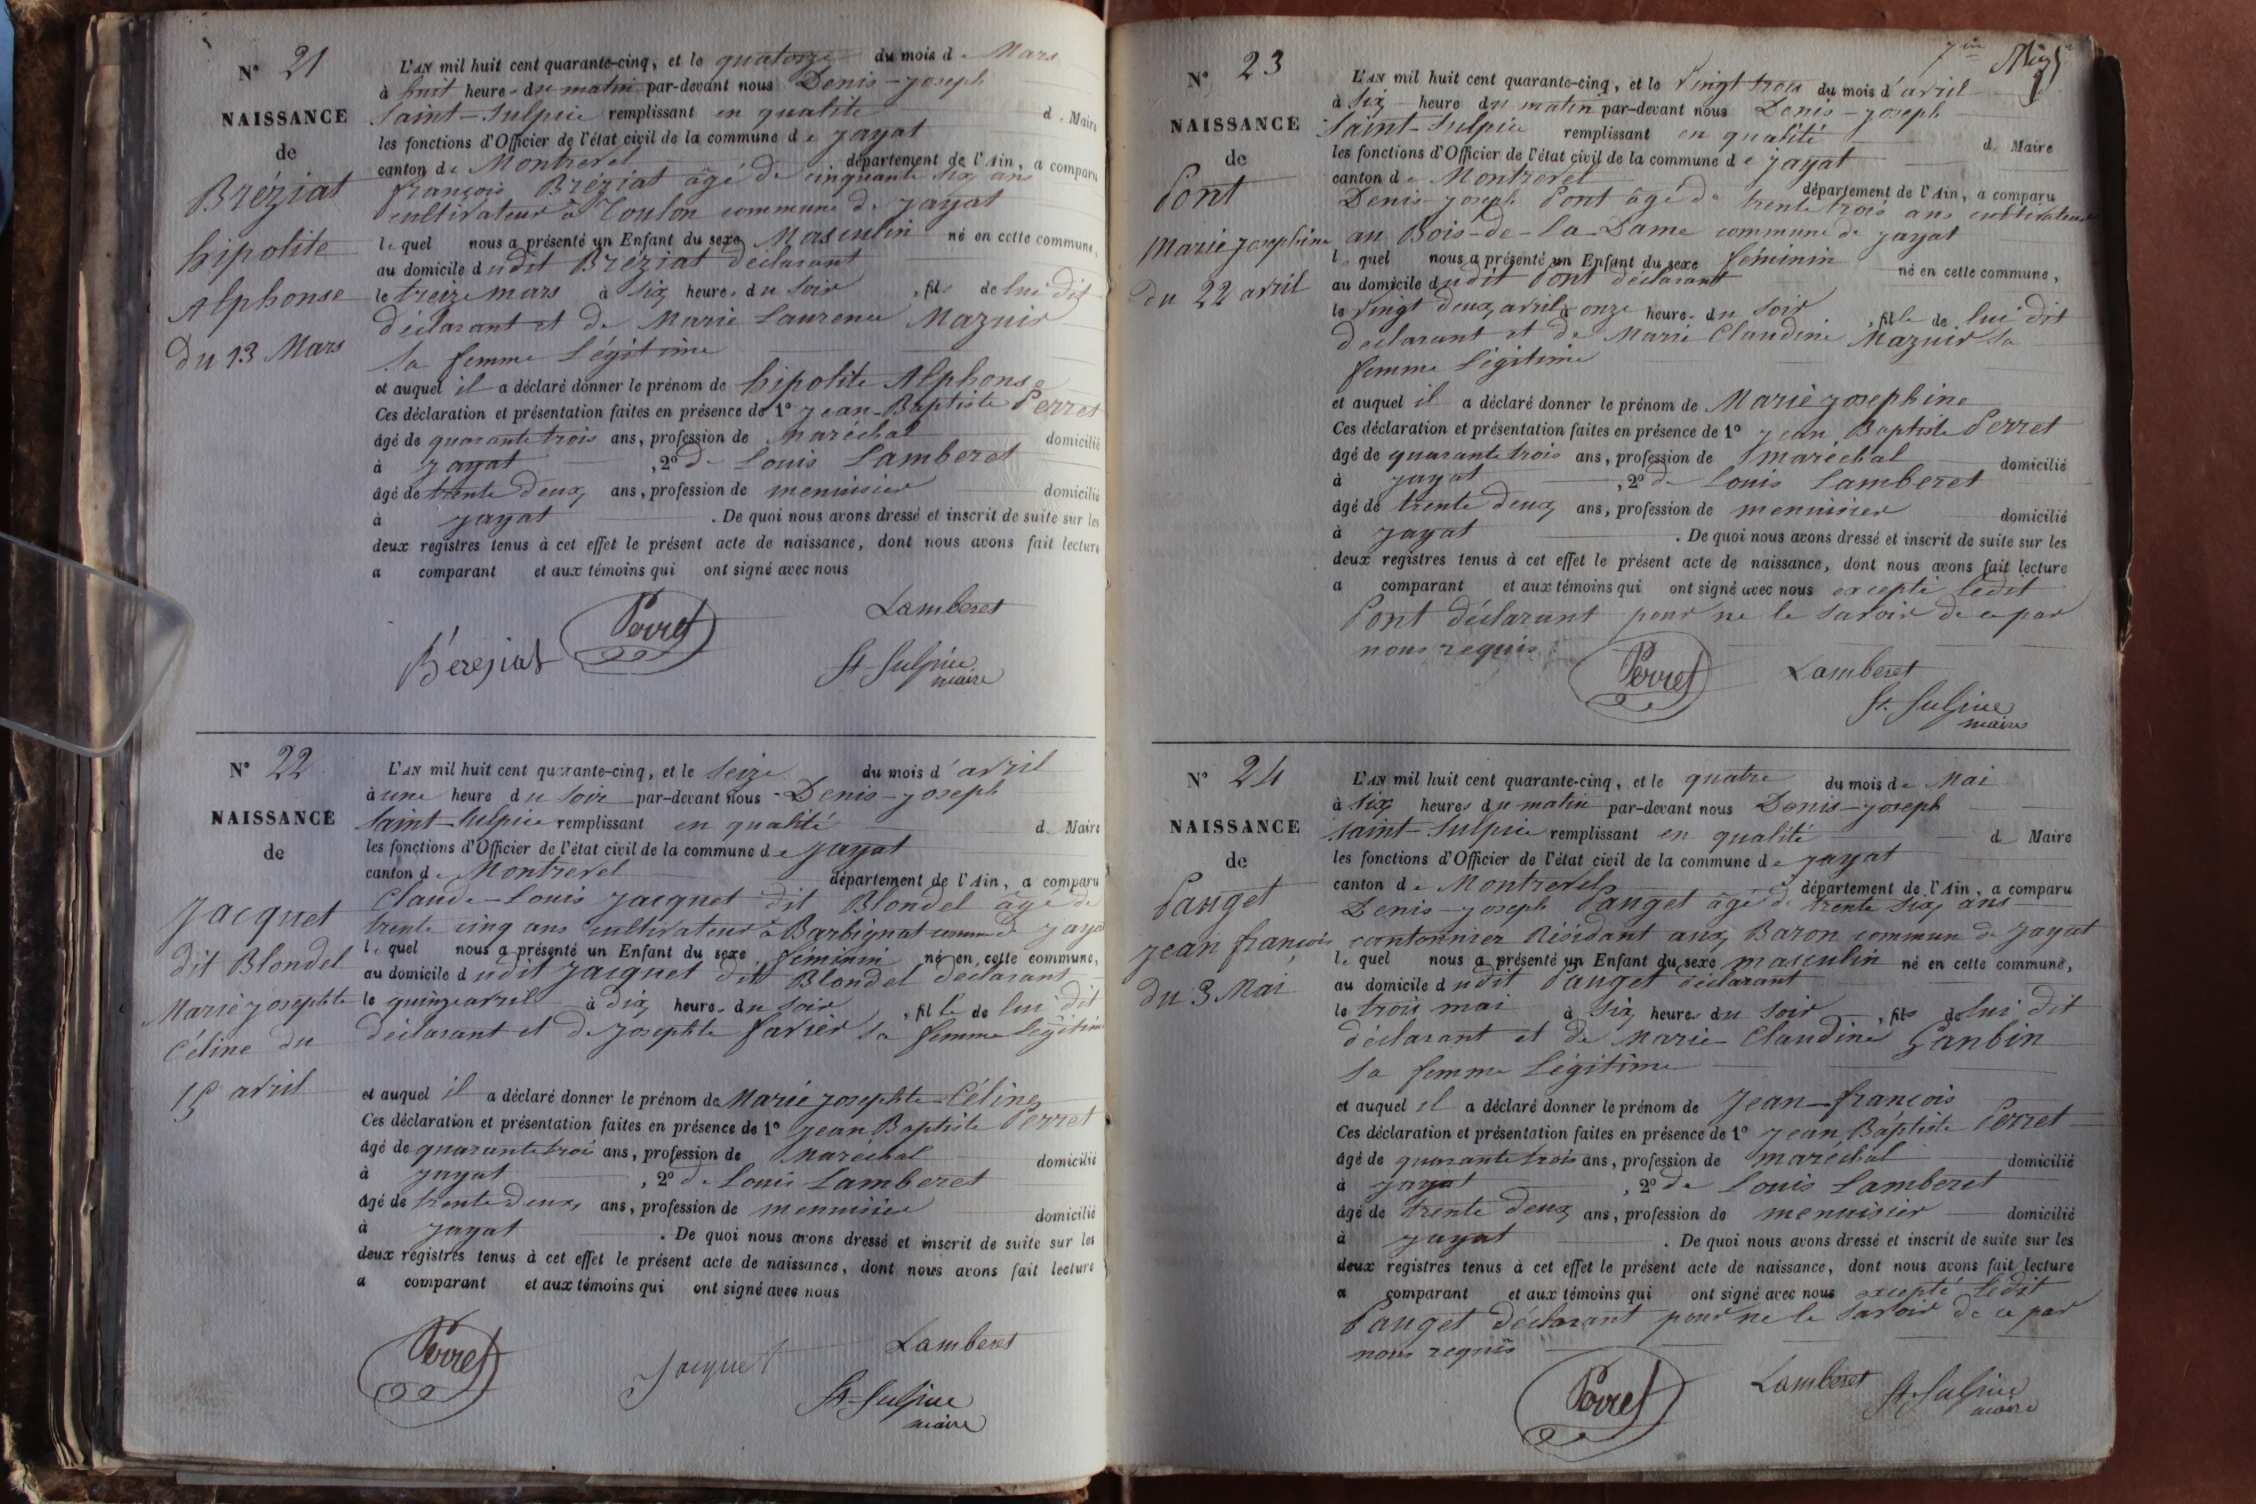 N° 21
NAISSANCE
de
Bréziat
hipolite
Alphonse
du 13 Mars
L'AN mil huit cent quarante-cinq, et le quatorze du mois de Mars
à huit heures du matin par-devant nous Denis-joseph
Saint-Sulpice remplissant en qualité de Maire
les fonctions d'Officier de l'état civil de la commune de jayat
canton de Montrevel département de l'Ain, a comparu
françois Bréziat âgé de cinquante six ans
cultivateur à Toulon commune de jayat
lequel nous a présenté un Enfant du sexe Masculin né en cette commune,
au domicile dudit Bréziat déclarant
le treize mars à six heures du soir, fils de lui dit
déclarant et de Marie Laurence Mazuir
sa femme légitime
et auquel il a déclaré donner le prénom de hipolite Alphonse
Ces déclaration et présentation faites en présence de 1° jean-Baptiste Perret
âgé de quarante trois ans, profession de maréchal domicilié
à jayat, 2° de Louis Lamberet
âgé de trente deux ans, profession de menuisier domicilié
à jayat. De quoi nous avons dressé et inscrit de suite sur les
deux registres tenus à cet effet le présent acte de naissance, dont nous avons fait lecture
a comparant et aux témoins qui ont signé avec nous
Lamberet
Perret
Béreziat
St-Sulpice
maire
N° 22
NAISSANCE
de
jacquet
dit Blondel
Marie josephte
Céline du
15 avril
L'AN mil huit cent quarante-cinq, et le seize du mois d'avril
à une heure du soir par-devant nous Denis-joseph
Saint-Sulpice remplissant en qualité de Maire
les fonctions d'Officier de l'état civil de la commune de jayat
canton de Montrevel département de l'Ain, a comparu
Claude-Louis jacquet dit Blondel âgé de
trente cinq ans cultivateur à Barbignat commune de jayat
lequel nous a présenté un Enfant du sexe féminin né en cette commune,
au domicile dudit jacquet dit Blondel déclarant
le quinze avril à dix heures du soir, fille de lui dit
déclarant et de josephte favier sa femme légitime
et auquel il a déclaré donner le prénom de Marie josephte-Céline
Ces déclaration et présentation faites en présence de 1° jean Baptiste Perret
âgé de quarante trois ans, profession de maréchal domicilié
à jayat, 2° de Louis Lamberet
âgé de trente deux ans, profession de menuisier domicilié
à jayat. De quoi nous avons dressé et inscrit de suite sur les
deux registres tenus à cet effet le présent acte de naissance, dont nous avons fait lecture
a comparant et aux témoins qui ont signé avec nous
Perret
jacquet
Lamberet
St-Sulpice
maire
N° 23
NAISSANCE
de
Pont
Marie josephine
du 22 avril
L'AN mil huit cent quarante-cinq, et le vingt trois du mois d'avril
à six heure du matin par-devant nous Denis-joseph
Saint-Sulpice remplissant en qualité de Maire
les fonctions d'Officier de l'état civil de la commune de jayat
canton de Montrevel département de l'Ain, a comparu
Denis-joseph Pont âgé de trente trois ans cultivateur
au Bois-de-la-Dame commune de jayat
lequel nous a présenté un Enfant du sexe féminin né en cette commune,
au domicile dudit Pont déclarant
le vingt deux avril à onze heures du soir, fille de lui dit
déclarant et de Marie Claudine Mazuir sa
femme légitime
et auquel il a déclaré donner le prénom de Marie josephine
Ces déclaration et présentation faites en présence de 1° jean Baptiste Perret
âgé de quarante trois ans, profession de maréchal domicilié
à jayat, 2° de Louis Lamberet
âgé de trente deux ans, profession de menuisier domicilié
à jayat. De quoi nous avons dressé et inscrit de suite sur les
deux registres tenus à cet effet le présent acte de naissance, dont nous avons fait lecture
a comparant et aux témoins qui ont signé avec nous excepté ledit
Pont déclarant pour ne le savoir de ce par
nous requis
Perret
Lamberet
St-Sulpice
maire
N° 24
NAISSANCE
de
Pauget
jean françois
du 3 Mai
L'AN mil huit cent quarante-cinq, et le quatre du mois de Mai
à six heures du matin par-devant nous Denis-joseph
Saint-Sulpice remplissant en qualité de Maire
les fonctions d'Officier de l'état civil de la commune de jayat
canton de Montrevel département de l'Ain, a comparu
Denis-joseph Pauget âgé de trente six ans
cantonnier Résidant aux Baron commun de jayat
lequel nous a présenté un Enfant du sexe masculin né en cette commune,
au domicile dudit Pauget déclarant
le trois mai à six heures du soir, fils de lui dit
déclarant et de Marie-Claudine Ganbin
sa femme légitime
et auquel il a déclaré donner le prénom de Jean-françois
Ces déclaration et présentation faites en présence de 1° jean Baptiste Perret
âgé de quarante trois ans, profession de maréchal domicilié
à jayat, 2° de Louis Lamberet
âgé de trente deux ans, profession de menuisier domicilié
à jayat. De quoi nous avons dressé et inscrit de suite sur les
deux registres tenus à cet effet le présent acte de naissance, dont nous avons fait lecture
a comparant et aux témoins qui ont signé avec nous excepté ledit
Pauget déclarant pour ne le savoir de ce par
nous requis
Perret
Lamberet
St-Sulpice
maire